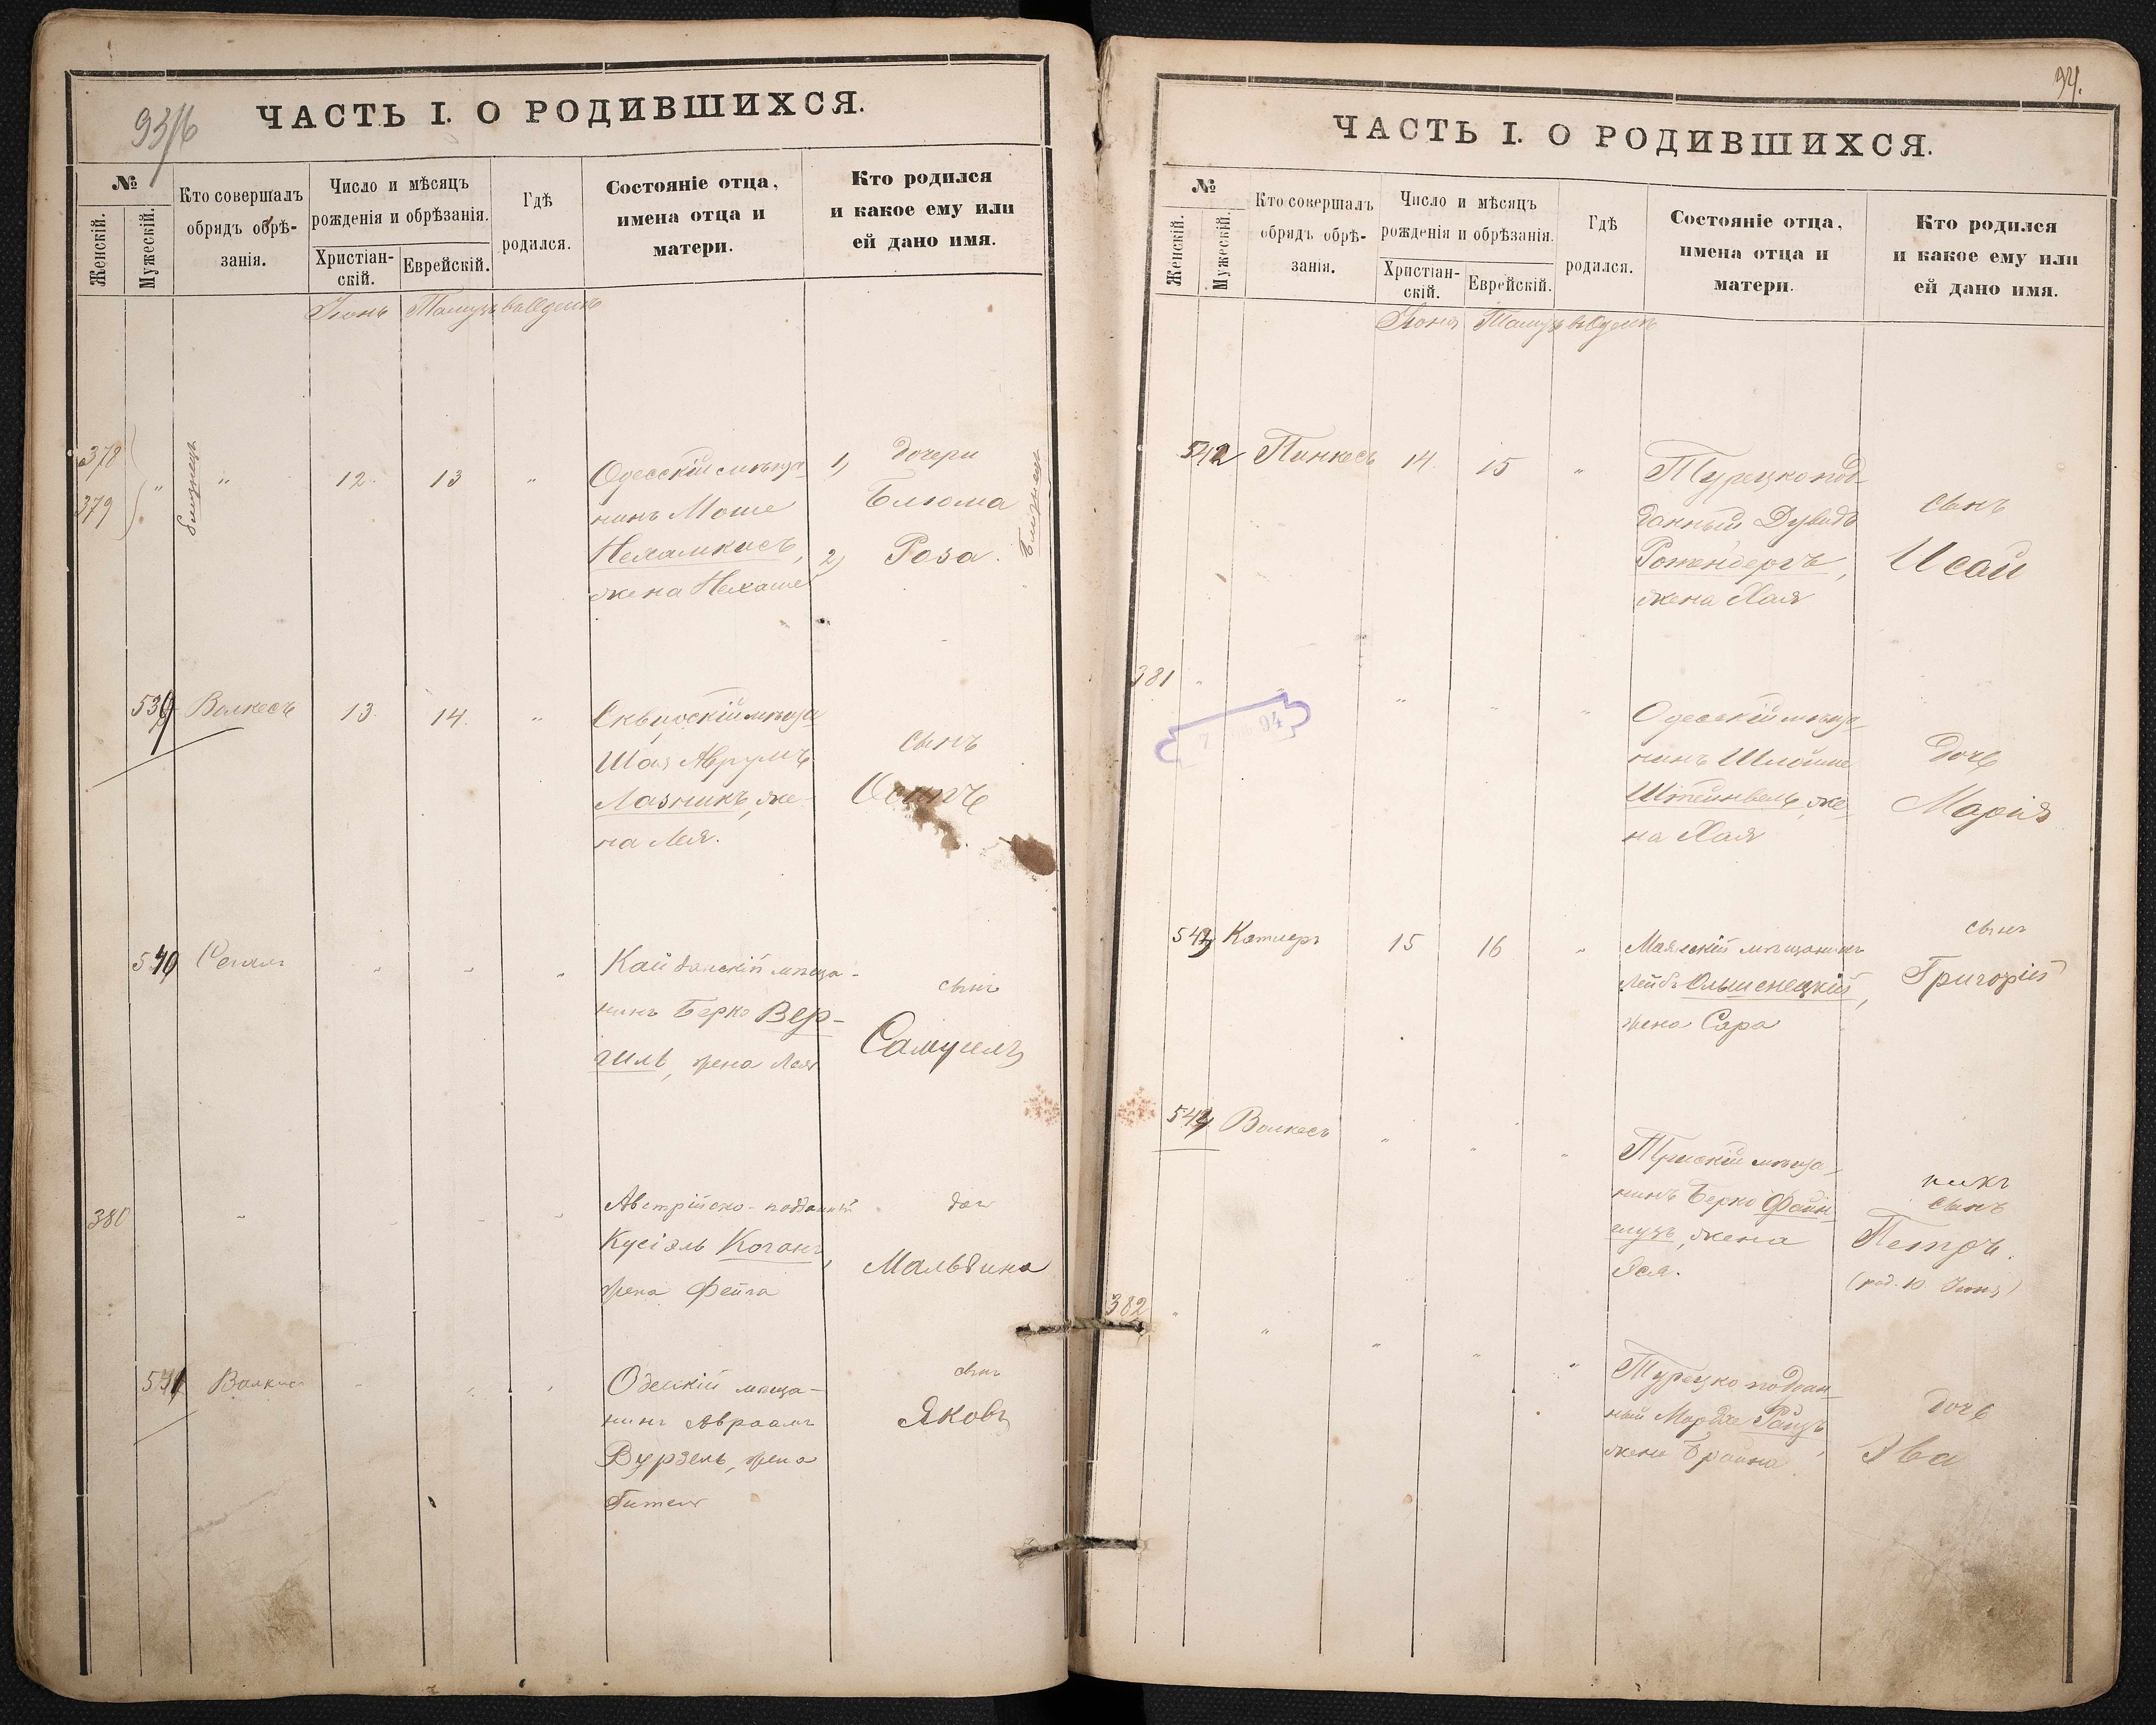 93/6
ЧАСТЬ I. О РОДИВШИХСЯ.
№
Женскій.
Мужескій.
Кто совершалъ
обрядъ обрѣ-
занія.
Число и мѣсяцъ
рожденія и обрѣзанія.
Христіан-
скій.
Еврейскій.
Гдѣ
родился.
Состояніе отца,
имена отца и
матери.
Кто родился
и какое ему или
ей дано имя.
Іюнь Тамузъ въ Одессѣ
378
379
близнецы
" " 12. 13 "
Одесскій мѣща-
нинъ Моше
Нехамкисъ,
жена Нехаме
1, дочери
Блюма
2, Роза.
Близнецы
539 Волкесъ 13. 14. "
Сквирскій мѣща
Шая Аврумъ
Лазникъ, же-
на Лея.
сынъ
Осипъ
540 Сегалъ " " "
Кайданскій мѣща-
нинъ Берко Вер-
гилъ, жена Лея
сынъ
Самуилъ
380 " " " "
Австрійско-подданный
Кусіэль Коганъ,
жена Фейга
доч
Мальвина
541 Волкис " " "
Одесскій мѣща-
нинъ Авраамъ
Вурзель, жена
Гителя
сынъ
Яковъ
94.
ЧАСТЬ I. О РОДИВШИХСЯ.
№
Женскій.
Мужескій.
Кто совершалъ
обрядъ обрѣ-
занія.
Число и мѣсяцъ
рожденія и обрѣзанія.
Христіан-
скій.
Еврейскій.
Гдѣ
родился.
Состояніе отца,
имена отца и
матери.
Кто родился
и какое ему или
ей дано имя.
Іюня Тамузъ въ Одессѣ
542 Пинкесъ 14. 15 "
Турецкопод-
данный Дувидъ
Ротенбергъ,
жена Хая
сынъ
Исай
381 " " " "
Одесскій мѣща-
нинъ Шлойме
Штейнвель, же-
на Хая
дочь
Марія
543 Котлеръ 15 16 "
Маякскій мѣщанинъ
Лейбъ Ольшенецкій,
жена Сара
сынъ
Григорій
544 Волкесъ " " "
мѣща-
нинъ Берко Файн-
жена
сынъ
Петръ.
(род. 10 Іюня)
382 " " " "
Турецко поддан-
ный Мордхе
жена Брайна
дочь
Эва